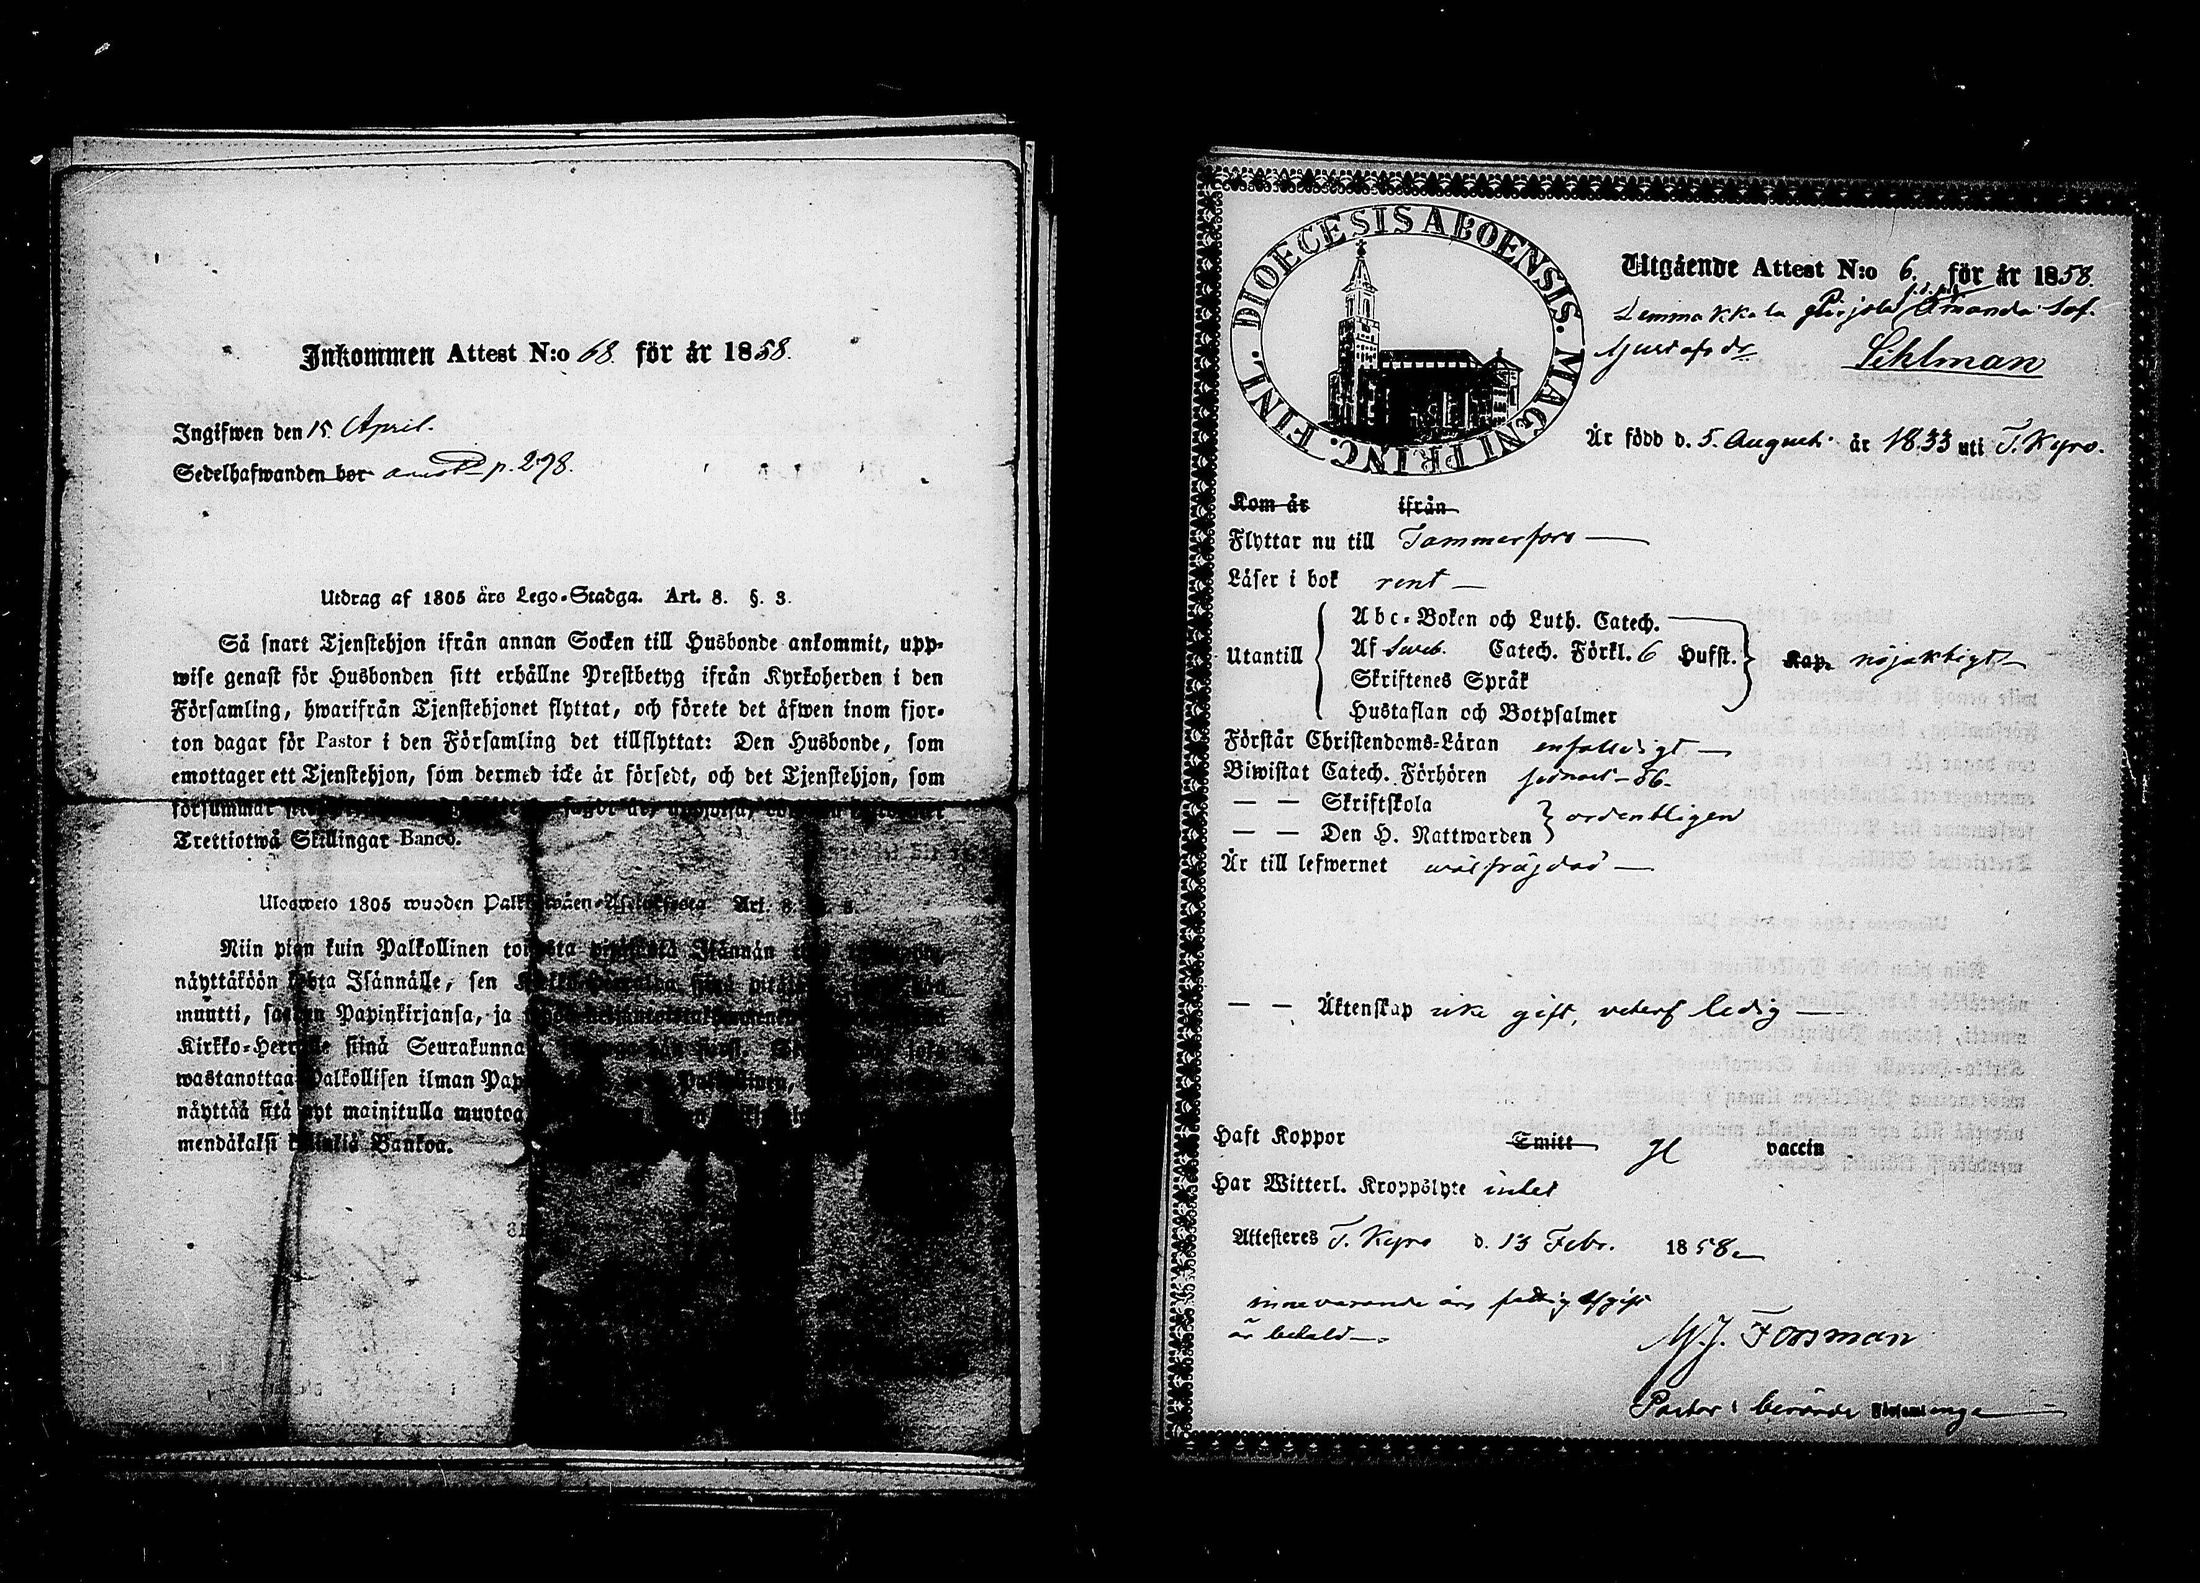 Inkommen Attest N:o 68. för år 1858.
Ingifwen den 15. April.
Sedelhafwanden bör p. 278.
Utdrag af 1805 års Lego-Stadga. Art. 8. §. 3.
Så snart Tjenstehjon ifrån annan Socken till Husbonde ankommit, upp-
wise genast för Husbonden sitt erhållne Prestbetyg ifrån Kyrkoherden i den
Församling, hwarifrån Tjenstehjonet flyttat, och förete det äfwen inom fjor-
ton dagar för Pastor i den Församling det tillflyttat: Den Husbonde, som
emottager ett Tjenstehjon, som dermed icke är försedt, och det Tjenstehjon, som
försummar
Trettiotwå Skillingar Banco.
Ulosweto 1805 wuoden Art. 8.
Niin pian kuin Palkollinen Isännän
näyttäköön Isännälle, sen
muutti, Papinkirjansa, ja
Kirkko-Herralle siinä Seurakunnasa
wastanottaa Palkollisen ilman
näyttää sitä nyt mainitulla muotoa
mendäkaksi Killinkiä Bankoa.
DIOECESIS ABOENSIS. MAGNI PRINC. FINL.
Utgående Attest N:o 6. för år 1858.
Lemmakkala Amanda Sof.
Gustafsdr Sihlman
Är född d. 5. Augusti år 1833 uti T. Kyro.
Kom år ifrån
Flyttar nu till Tammerfors
Läser i bok rent
Abc-Boken och Luth. Catech.
Utantill Af Sveb. Catech. Förkl. 6 Husst. Kap. nöjaktigt
Skriftenes Språk
Hustaflan och Botpsalmer
Förstår Christendoms-Läran enfaldigt
Biwistat Catech. Förhören sednast 56.
— — Skriftskola
— — Den H. Nattwarden ordentligen
Är till lefwernet wälfrägdad
— — Äktenskap icke gift, veterl. ledig
Haft Koppor Smitt vaccin
Har Witterl. Kroppslyte intet
Attesteres T. Kyro d. 13 Febr. 1858
innevarande års fattig afgift
är betald
M. J. Forsman
Pastor i berörde Församlinge